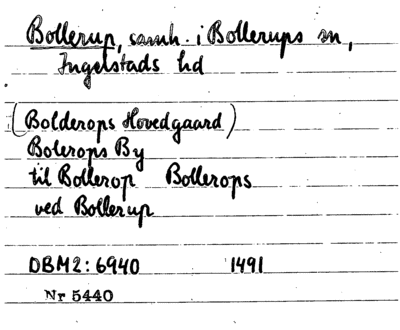 Bollerup, samh. i Bollerups sn,
Ingelstads hd
(Bolderops Hovedgaard)
Bolerops By
til Bollerop Bollerops
ved Bollerup
DBM2: 6940 1491
Nr 5440